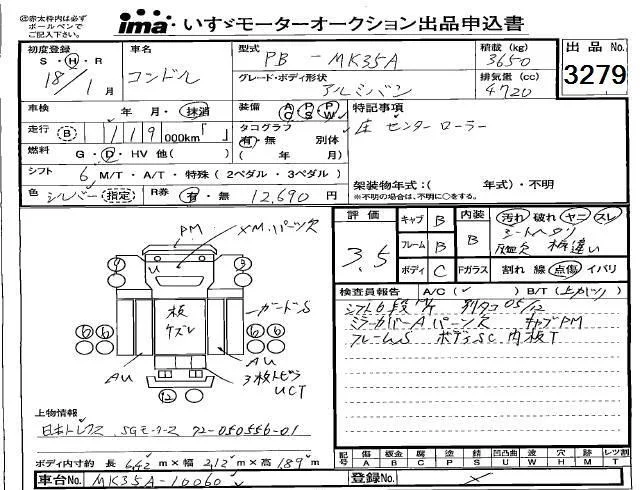 ㊟赤太枠内は必ず
ボールペンで
ご記入下さい。
ima いすゞモーターオークション出品申込書
初度登録 車名 型式 積載 (kg) 出品 No.
S・H・R 18/1月 コンドル PB-MK35A 3650 3279
グレード・ボディ形状 アルミバン 排気量 (cc) 4720
車検 年 月・抹消 装備 AC PS PW 特記事項
走行 B 119 000km「 」 タコグラフ 有・無 別体 庄 センターローラー
燃料 G・D・HV 他( ) ( 年 月)
シフト 6 M/T・A/T・特殊(2ペダル・3ペダル)
架装物年式:( 年式)・不明
※不明の場合は、不明に○をする。
色 シルバー 指定 R券 有・無 12,690円
評価 3.5
キャブ B 内装 B 汚れ 破れ ヤニ スレ
フレーム B シートヘタリ
ボディ C Fガラス 割れ 線 点傷 イバリ
検査員報告 A/C( ) B/T( )
シフト6段 別タコ 05/12
ミラーカバーA パーツ欠 キャブPM
フレームS ボディSC. 内板T
PM XM.パーツ欠
U
板ケズレ
ガードS
AU AU
3枚トビラ
UCT
6 6 6 6
12
上物情報
日本トレクス SGモータース 92-050556-01
ボディ内寸約 長 642 m×幅 212 m×高 189 m
記号 傷A 板金B 腐C 塗P 錆S 凹凸曲U 波W 穴H 交M レツ割T
車台No. MK35A-10060 登録No.